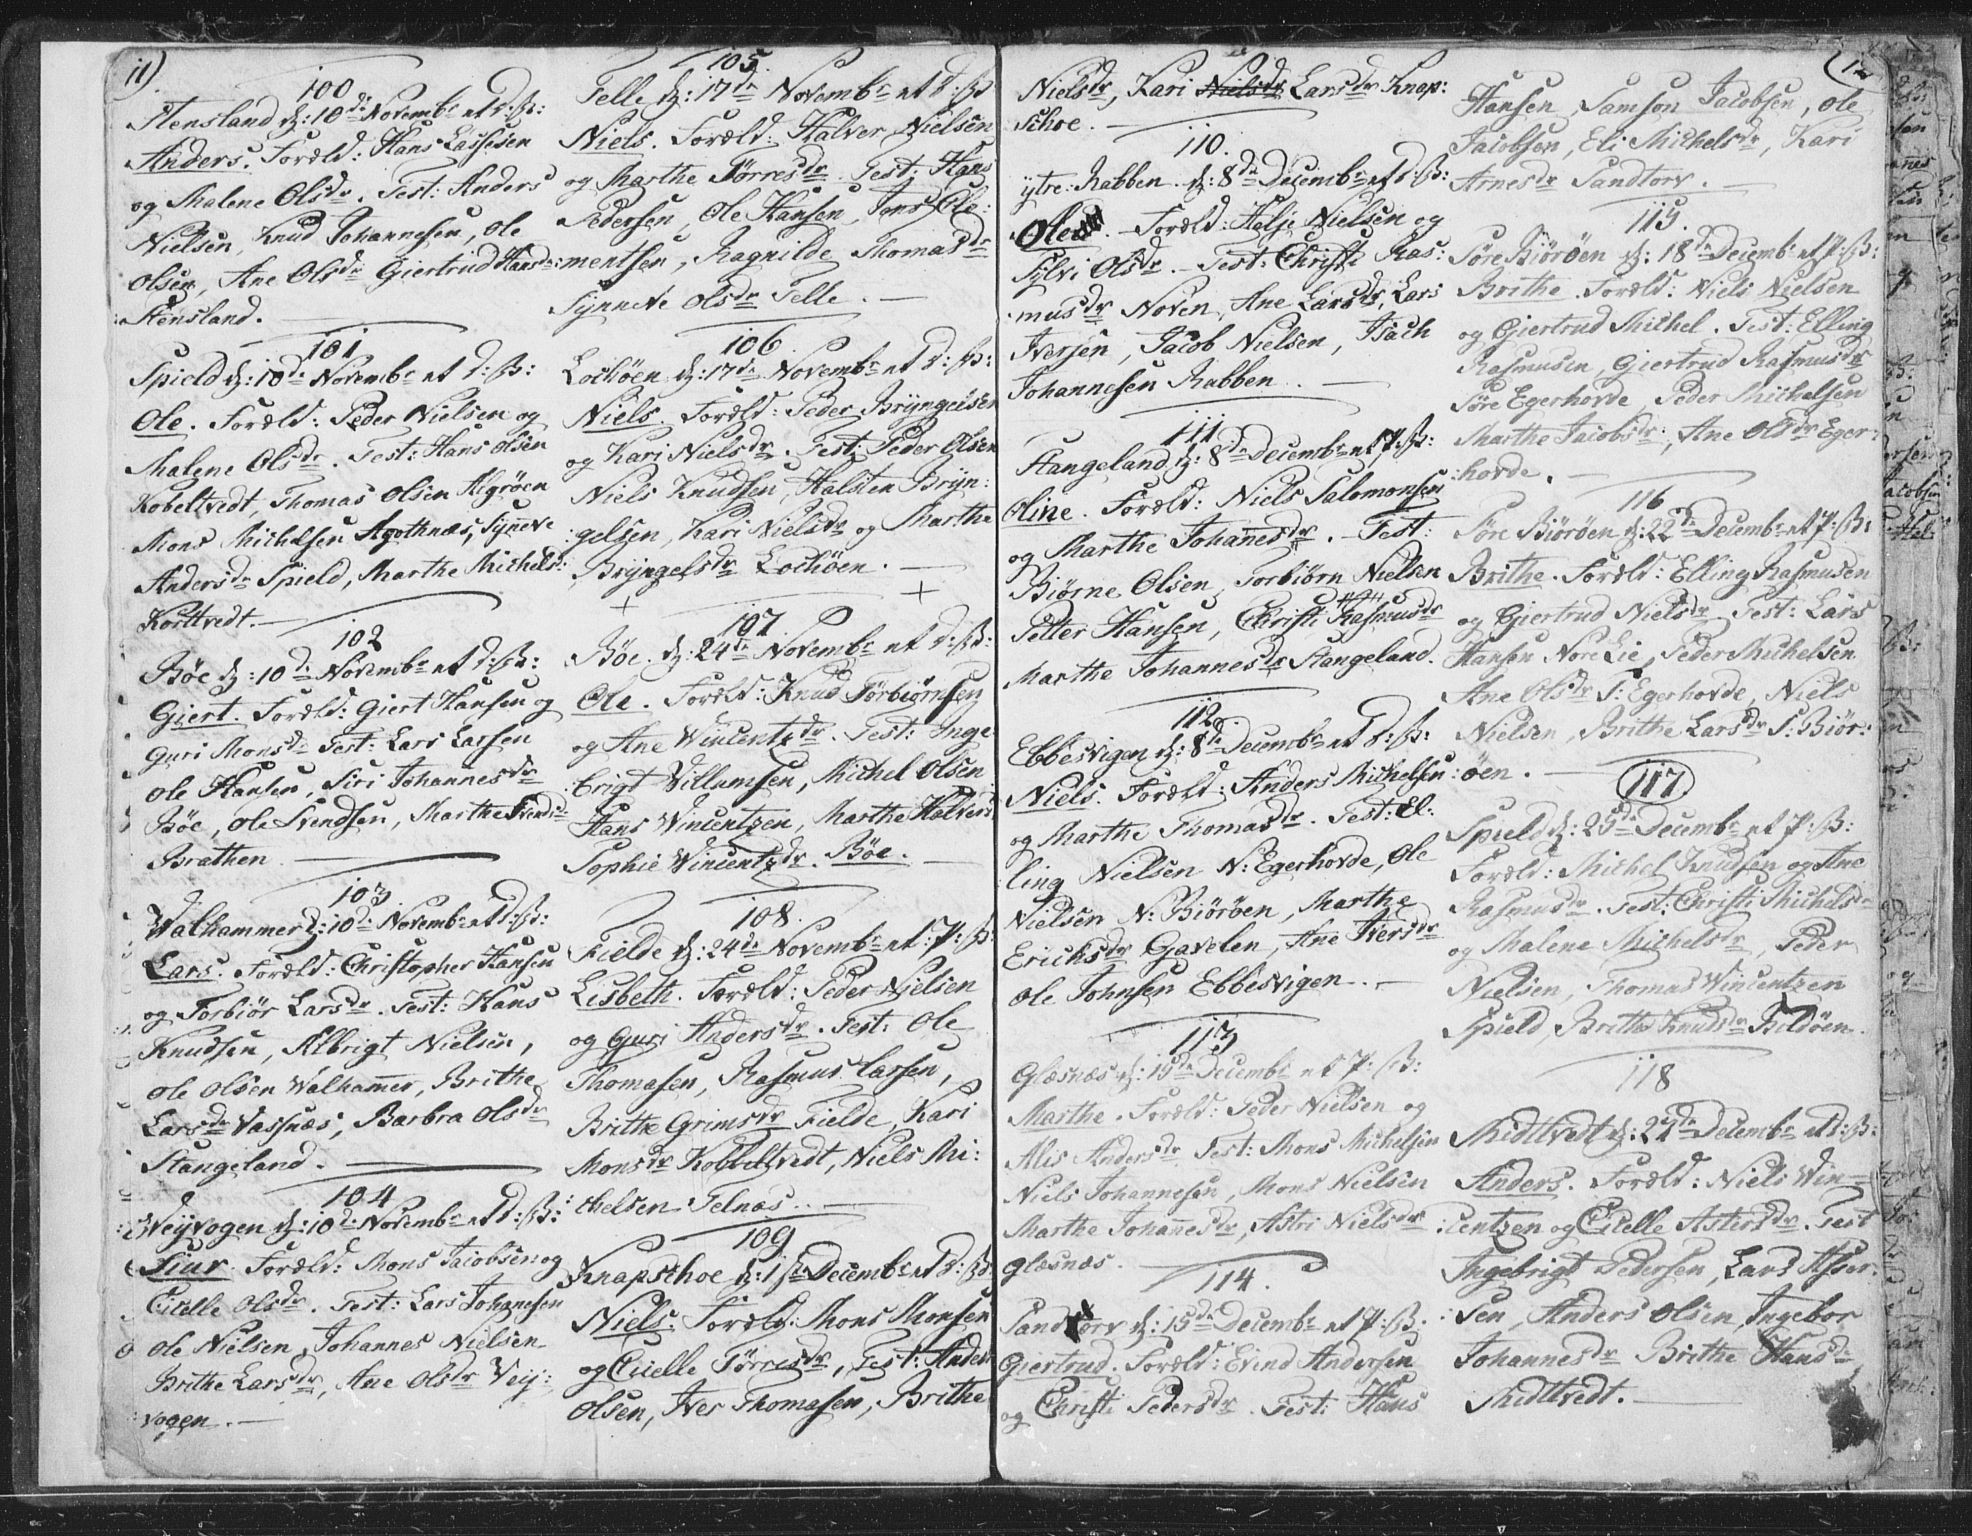 11)
100
Stensland d: 10de Novembr et d: ß:
Anders. Foræld: Hans Lassesen
og Malene Olsdr. Test: Anders
Nielsen, Knud Johannesen, Ole
Olsen, Ane Olsdr Giertrud Hansdr
Stensland.
101
Spield d: 10de Novembr et d: ß:
Ole. Foræld: Peder Nielsen og
Malene Olsdr. Test: Hans Olsen
Kobeltvedt, Thomas Olsen Algrøen
Mons Michelsen Agothnæs, Syneve
Andersdr Spield, Marthe Michels:
Korttvedt.
102
Bøe d: 10de Novembr et d: ß:
Giert. Foræld: Giert Hansen og
Guri Monsdr Test: Lars Larsen
Ole Hansen, Siri Johannesdr
Bøe, Ole Svendsen, Marthe Svendsdr
Brathen
103
Walhammer d: 10de Novembr et d: ß:
Lars. Foræld: Christopher Hansen
og Torbiør Larsdr. Test: Hans
Knudsen, Albrigt Nielsen,
Ole Olsen Walham̅er, Brithe
Larsdr Vassnæs, Barbra Olsdr
Stangeland.
104
Weyvogen d: 10de Novembr et d: ß:
Siur. Foræld: Mons Jacobsen og
Citelle Olsdr. Test: Lars Johannesen
Ole Nielsen, Johannes Nielsen
Brithe Larsdr, Ane Olsdr Vey:
:vogen.
105.
Telle d: 17de Novembr et d: ß
Niels. Foræld: Halver Nielsen
og Marthe Tørresdr. Test: Hans
Pedersen, Ole Hansen, Jens Cle:
:mentsen, Ragnilde Thomasdr
Synneve Olsdr Telle.
106
Lochøen d: 17de Novembr et d: ß:
Niels. Foræld: Peder Bryngelsen
og Kari Nielsdr. Test: Peder Olsen
Niels Knudsen, Halsten Bryn:
:gelsen, Kari Nielsdr og Marthe
Bryngelsdr Lochøen.
107
Bøe. d: 24de Novembr et d: ß:
Ole. Foræld: Knud Torbiørnsen
og Ane Wincentzdr. Test: Inge
:brigt Villumsen, Michel Olsen
Hans Wincentzen, Marthe Halvers
Sophie Wincentzdr. Bøe.
108.
Fielde d: 24de Novembr et P: ß:
Lisbeth. Foræld: Peder Nielsen
og Guri Andersdr. Test: Ole
Thomasen, Rasmus Larsen,
Brithe Grimsdr Fielde, Kari
Monsdr Kobbeltvedt, Niels Mi:
:chelsen Telnæs.
109
Knapschoe d: 1ste Decembr et d: ß
Niels. Foræld: Mons Monsen
og Citelle Tørresdr, Test: Anders
Olsen, Iver Thomasen, Brithe
12
Nielsdr, Kari Nielsdr Larsdr Knap:
schoe.
110.
ytre: Rabben. d: 8de Decembr et d: ß:
Ole. Foræld: Helje Nielsen og
Sylvi Olsdr. Test: Christi Ras:
:musdr Noven, Ane Larsdr, Lars
Iversen, Jacob Nielsen, Isach
Johannesen Rabben.
111
Stangeland d: 8de Decembr et P: ß:
Oline. Foræld: Niels Salomonsen
og Marthe Johan̅esdr. Test:
Biørne Olsen, Torbiørn Nielsen
Petter Hansen, Christi Rasmusdr
Marthe Johannesdr Stangeland.
112.
Ebbesvigen d: 8de Decembr et d: ß:
Niels. Foræld: Anders Michelsen
og Marthe Thomasdr. Test: El:
:ling Nielsen N: Egerhovde, Ole
Nielsen N: Biørøen, Marthe
Ericksdr Gavelen, Ane Iversdr
Ole Johnsen Ebbesvigen.
113
Glæsnæs d: 15de Decembr et P: ß:
Marthe. Foræld: Peder Nielsen og
Alis Andersdr Test: Mons Michelsen
Niels Johannesen, Mons Nielsen
Marthe Johan̅esdr, Astri Nielsdr
Glæsnæs.
114.
Sandtorv d: 15de Decembr et P: ß:
Giertrud. Foræld: Evind Andersen
og Christi Pedersdr. Test: Hans
Hansen, Samson Jacobsen, Ole
Jacobsen, Eli Michelsdr, Kari
Arnesdr Sandtorv.
115.
Søre Biørøen d: 18de Decembr et P: ß:
Brithe. Foræld: Niels Nielsen
og Giertrud Michel. Test: Elling
Rasmusen, Giertrud Rasmusdr
Søre Egerhovde, Peder Michelsen
Marthe Jacobsdr, Ane Olsdr Eger:
:hovde.
116
Søre Biørøen d: 22de Decembr et P: ß:
Brithe. Foræld: Elling Rasmusen
og Giertrud Nielsdr Test: Lars
Hansen Nore Lie, Peder Michelsen
Ane Olsdr S: Egerhovde, Niels
Nielsen, Brithe Larsdr S: Biør:
:øen.
117
Spield d: 25de Decembr et P: ß:
Foræld: Michel Knudsen og Ane
Rasmusdr. Test: Christi Michelsdr
og Malene Michelsdr, Peder
Nielsen, Thomas Wincentzen
Spield, Brithe Knudsdr Bildøen.
118
Midttvedt d: 24de Decembr et d: ß:
Anders. Foræld: Niels Win=
:centzen og Citelle Astersdr. Test
Ingebrigt Pedersen, Lars Asser:
:sen, Anders Olsen, Ingebor
Johannesdr Brithe Hansdr
Midttvedt.